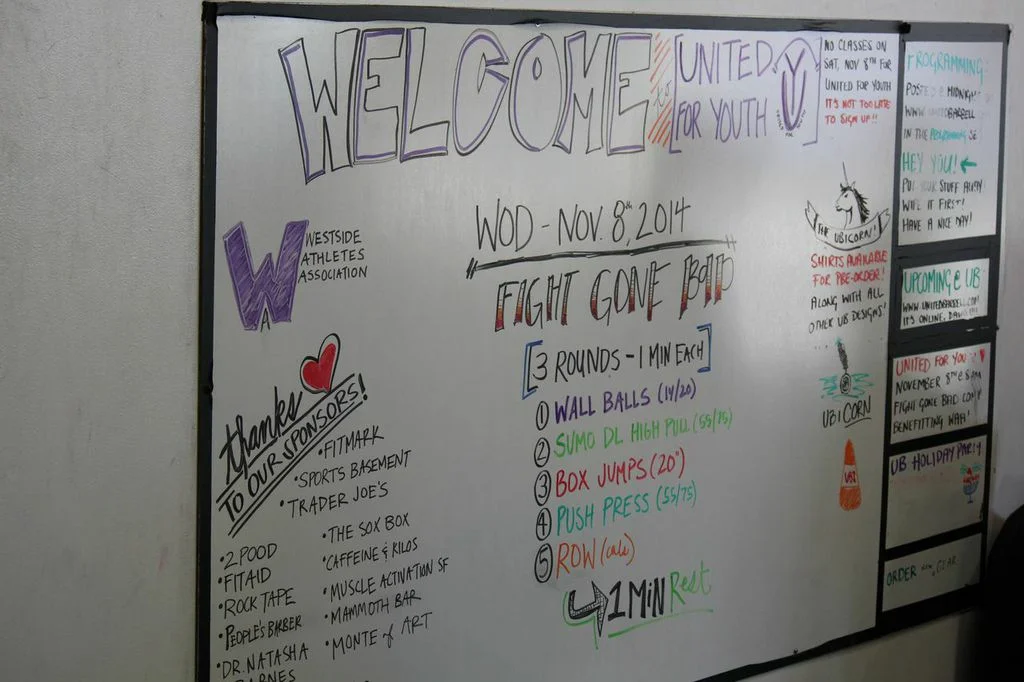 WELCOME to
[UNITED
FOR YOUTH]
NO CLASSES ON
SAT, NOV 8TH FOR
UNITED FOR YOUTH
IT'S NOT TOO LATE
TO SIGN UP!!
W
A
WESTSIDE
ATHLETES
ASSOCIATION
WOD - NOV. 8th, 2014
FIGHT GONE BAD
[3 ROUNDS - 1 MIN EACH]
1 WALL BALLS (14/20)
2 SUMO DL HIGH PULL (55/75)
3 BOX JUMPS (20")
4 PUSH PRESS (55/75)
5 ROW (cals)
1 MIN Rest
thanks
TO OUR SPONSORS!
•FITMARK
•SPORTS BASEMENT
•TRADER JOE'S
•2 POOD
•FITAID
•ROCK TAPE
•PEOPLE'S BARBER
•DR. NATASHA
BARNES
•THE SOX BOX
•CAFFEINE & KILOS
•MUSCLE ACTIVATION SF
•MAMMOTH BAR
•MONTE of ART
THE UBICORN!
SHIRTS AVAILABLE
FOR PRE-ORDER!
ALONG WITH ALL
OTHER UB DESIGNS!
UBICORN
PROGRAMMING
POSTED @ MIDNIGHT
WWW.
IN THE PROGRAMMING
HEY YOU! ←
PUT YOUR STUFF AWAY
WIPE IT FIRST!
HAVE A NICE DAY!
UPCOMING @ UB
WWW.UNITEDBARBELL.COM
IT'S ONLINE,
UNITED FOR YOUTH
NOVEMBER 8TH @ 8AM
FIGHT GONE BAD COMP
BENEFITTING WAA!
UB HOLIDAY PARTY
ORDER GEAR